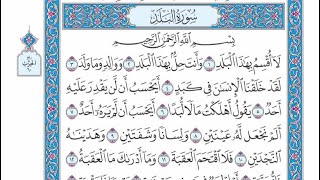 سُورَةُ الْبَلَدِ
بِسْمِ اللَّهِ الرَّحْمَٰنِ الرَّحِيمِ
لَا أُقْسِمُ بِهَٰذَا الْبَلَدِ ١ وَأَنتَ حِلٌّ بِهَٰذَا الْبَلَدِ ٢ وَوَالِدٍ وَمَا وَلَدَ ٣
لَقَدْ خَلَقْنَا الْإِنسَٰنَ فِي كَبَدٍ ٤ أَيَحْسَبُ أَن لَّن يَقْدِرَ عَلَيْهِ
أَحَدٌ ٥ يَقُولُ أَهْلَكْتُ مَالًا لُّبَدًا ٦ أَيَحْسَبُ أَن لَّمْ يَرَهُ أَحَدٌ ٧
أَلَمْ نَجْعَل لَّهُ عَيْنَيْنِ ٨ وَلِسَانًا وَشَفَتَيْنِ ٩ وَهَدَيْنَٰهُ
النَّجْدَيْنِ ١٠ فَلَا اقْتَحَمَ الْعَقَبَةَ ١١ وَمَا أَدْرَىٰكَ مَا الْعَقَبَةُ ١٢